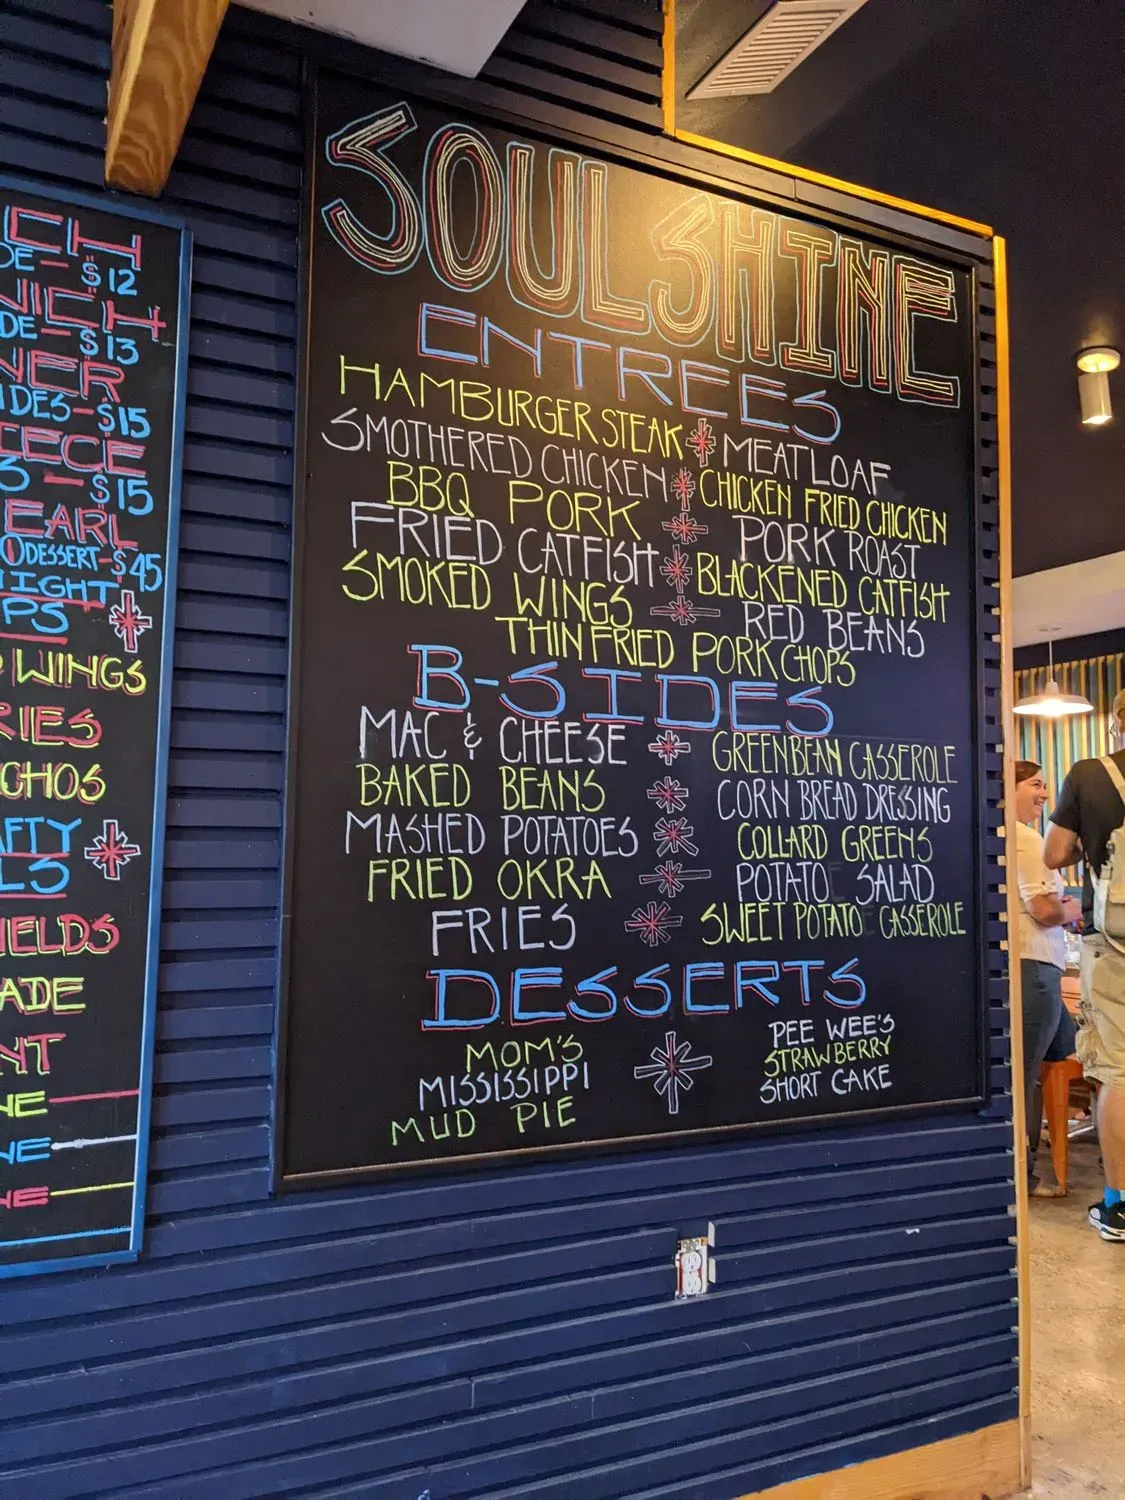 $12
$13
DES-$15
$15
EARL
DESSERT-$45
WINGS
SOULSHINE
ENTREES
HAMBURGER STEAK * MEATLOAF
SMOTHERED CHICKEN * CHICKEN FRIED CHICKEN
BBQ PORK * PORK ROAST
FRIED CATFISH * BLACKENED CATFISH
SMOKED WINGS * RED BEANS
THIN FRIED PORK CHOPS
B-SIDES
MAC & CHEESE * GREENBEAN CASSEROLE
BAKED BEANS * CORN BREAD DRESSING
MASHED POTATOES * COLLARD GREENS
FRIED OKRA * POTATO SALAD
FRIES * SWEET POTATO CASSEROLE
DESSERTS
MOM'S
MISSISSIPPI
MUD PIE
*
PEE WEE'S
STRAWBERRY
SHORT CAKE